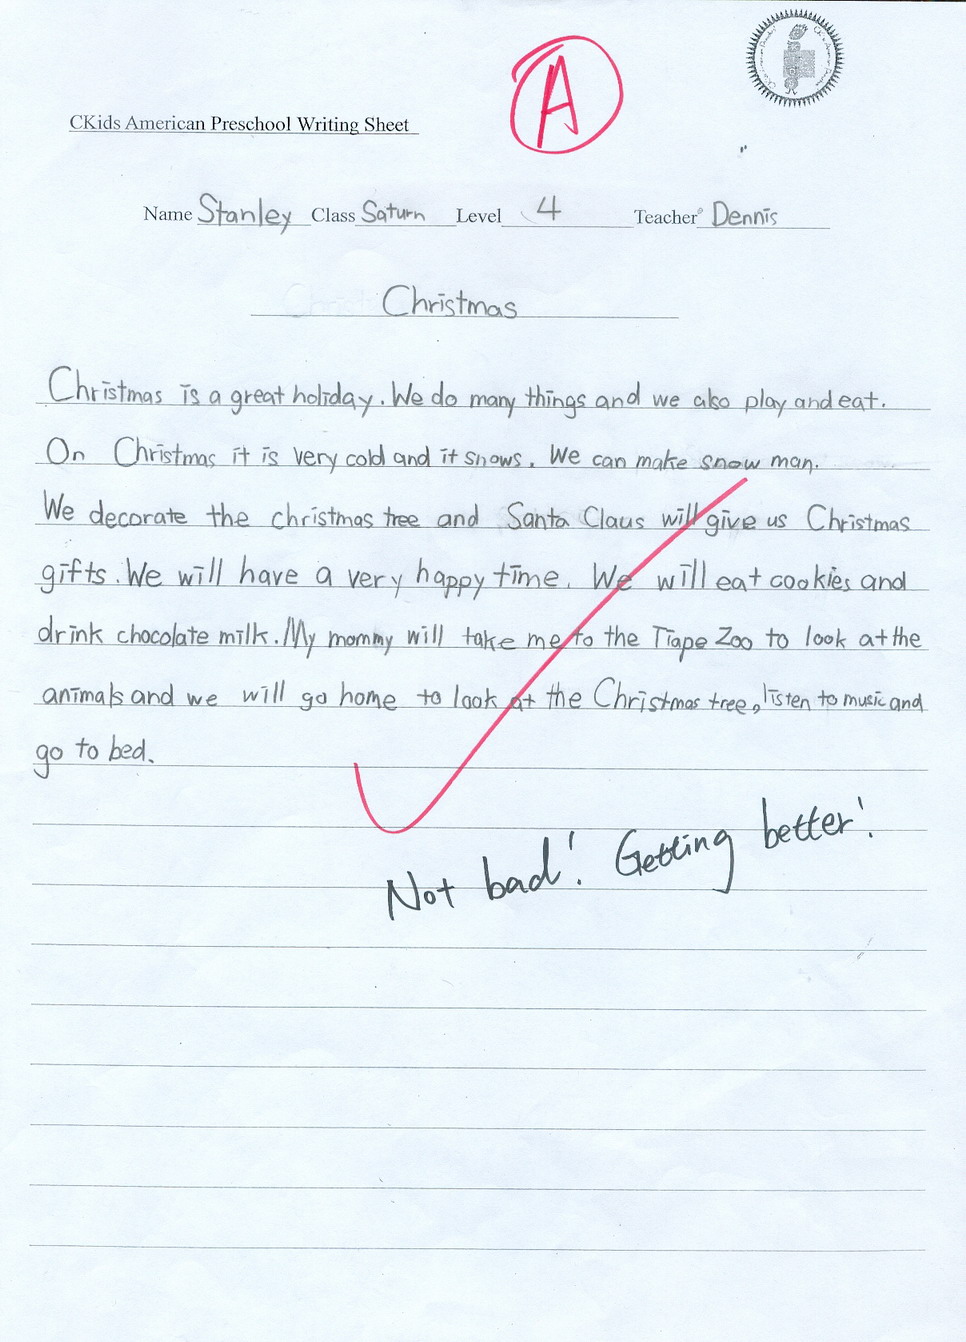 A
CKids American Preschool Writing Sheet
Name Stanley Class Saturn Level 4 Teacher Dennis
Christmas
Christmas is a great holiday. We do many things and we also play and eat.
On Christmas it is very cold and it snows. We can make snow man.
We decorate the christmas tree and Santa Claus will give us Christmas
gifts. We will have a very happy time. We will eat cookies and
drink chocolate milk. My mommy will take me to the Tiape Zoo to look at the
animals and we will go home to look at the Christmas tree, listen to music and
go to bed.
Not bad! Getting better!